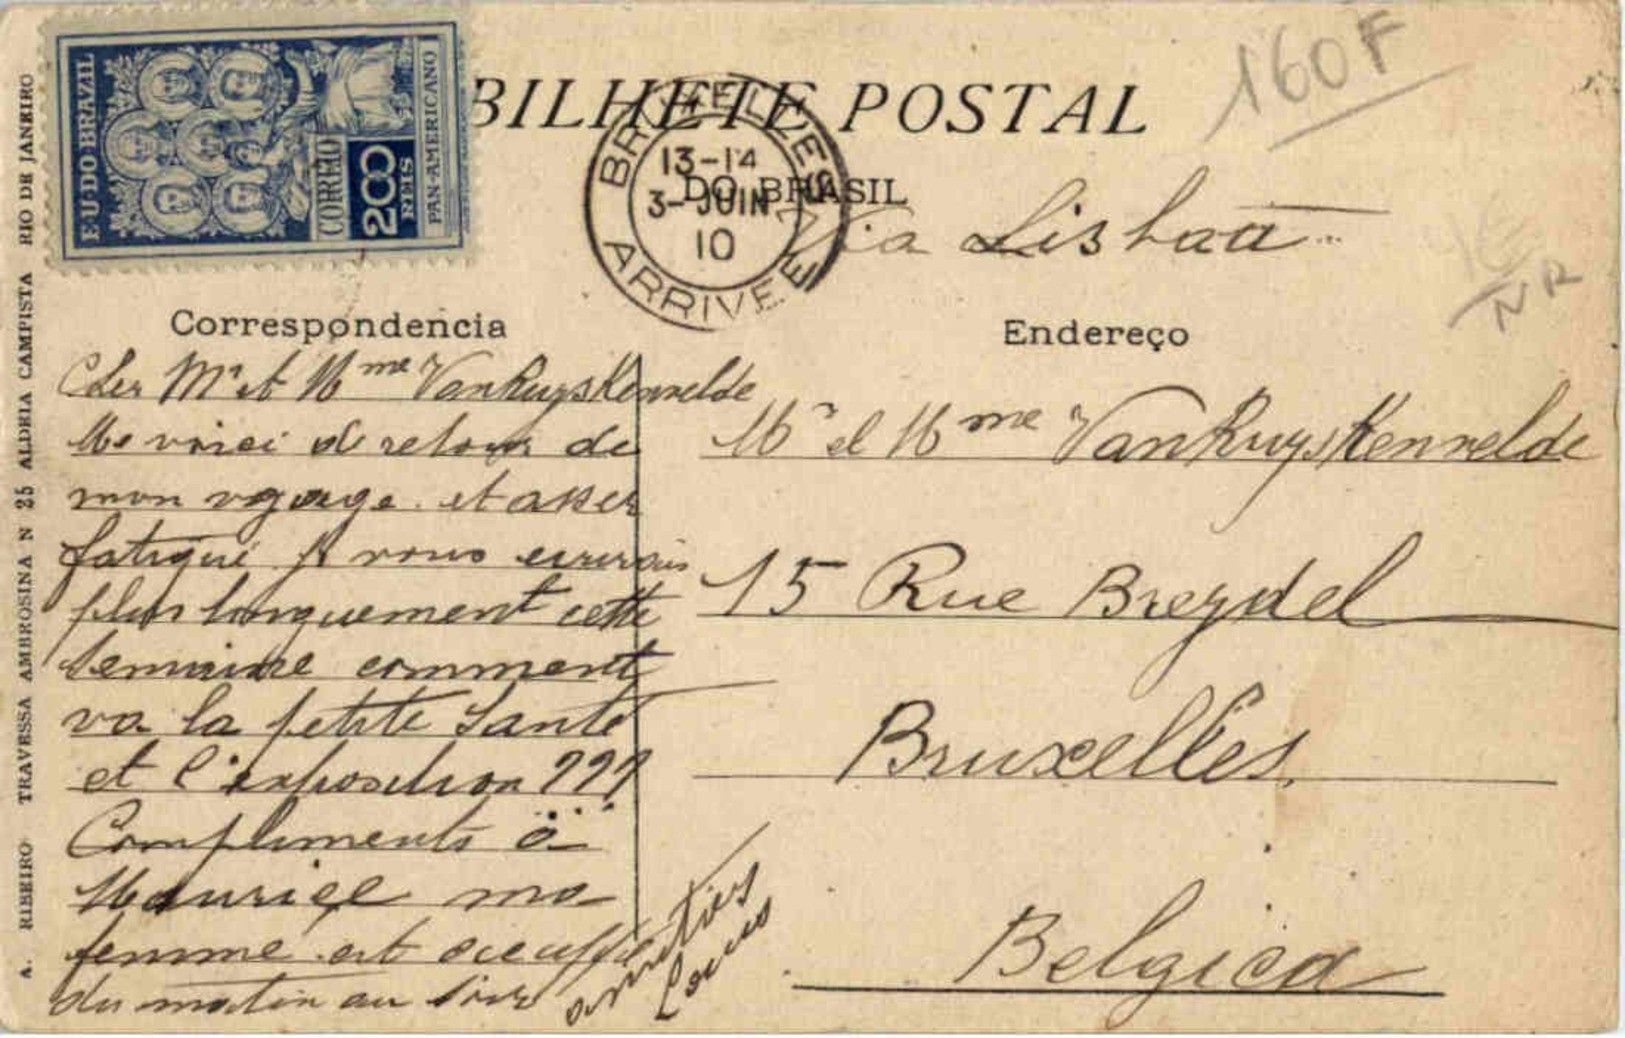 E·U·DO BRAZIL
CORREIO
200
REIS
PAN-AMERICANO
BILHETE POSTAL
DO BRASIL
160F
BRUXELLES
13-14
3-JUIN
10
ARRIVEE
Via Lisboa
NR
Correspondencia
Cher Mr et Mme VanRuysKenvelde
Me voici de retour de
mon voyage. et assez
fatigué je vous ecrirais
plus longuement cette
semaine comment
va la petite santé
et l'exposition ???
Compliments à
Maurice ma
femme est occupée
du matin au soir
amitiés
Louis
Endereço
Mr et Mme VanRuysKenvelde
15 Rue Breydel
Bruxelles.
Belgica
A. RIBEIRO TRAVESSA AMBROSINA N 25 ALDEIA CAMPISTA RIO DE JANEIRO